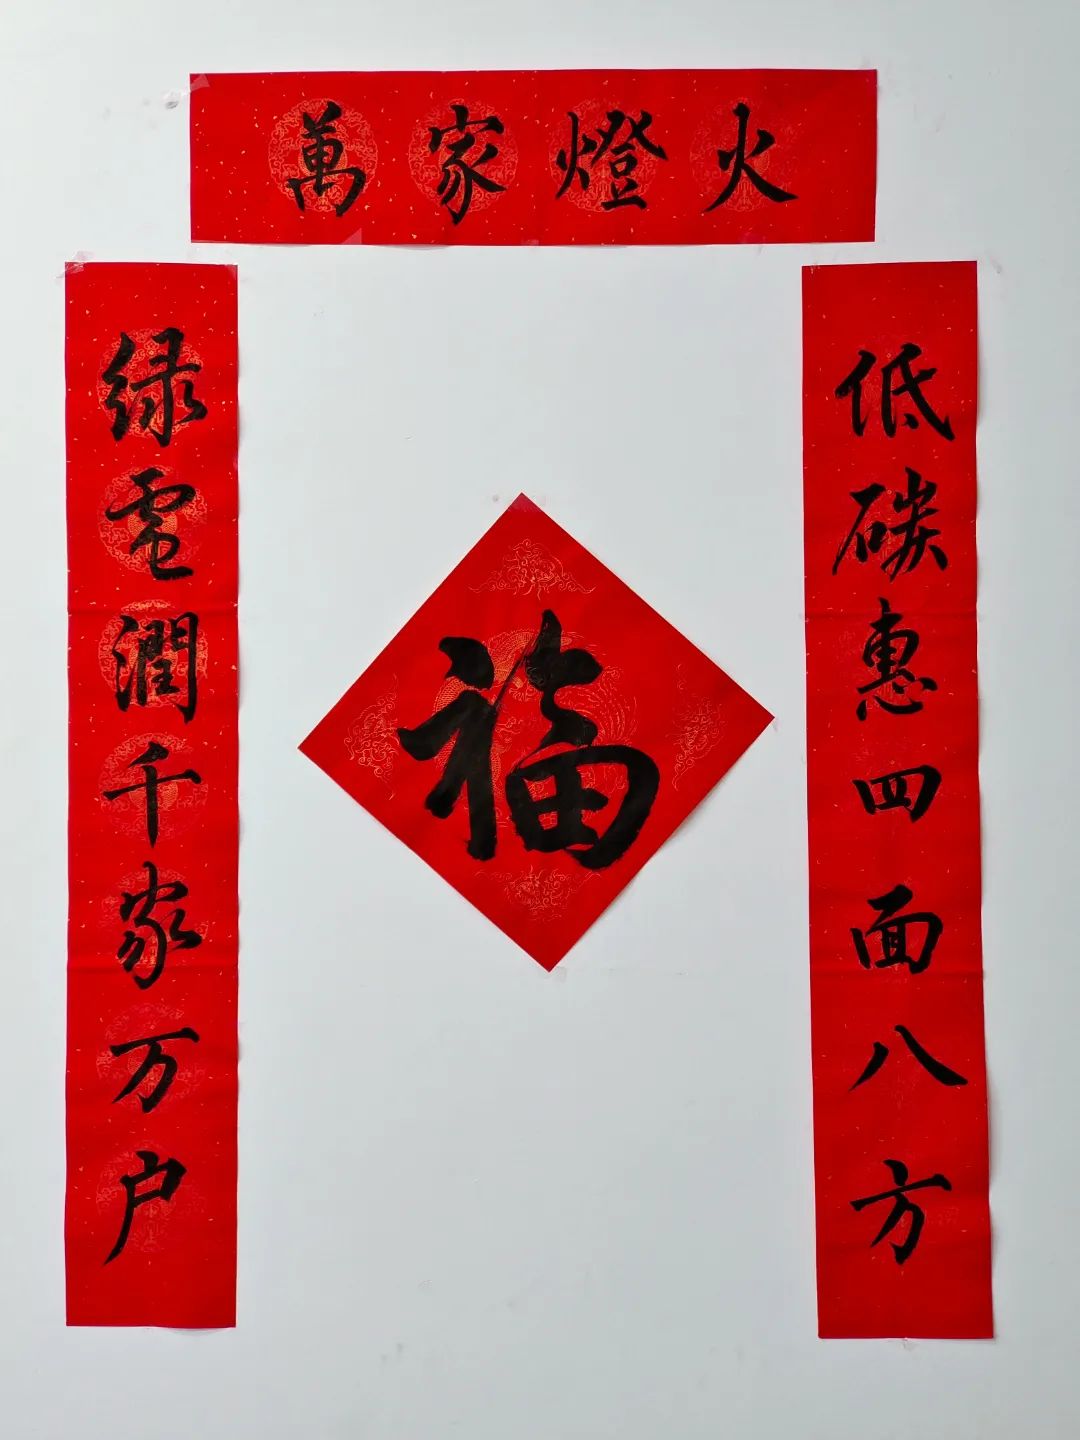 萬家燈火
绿電潤千家万户
福
低碳惠四面八方